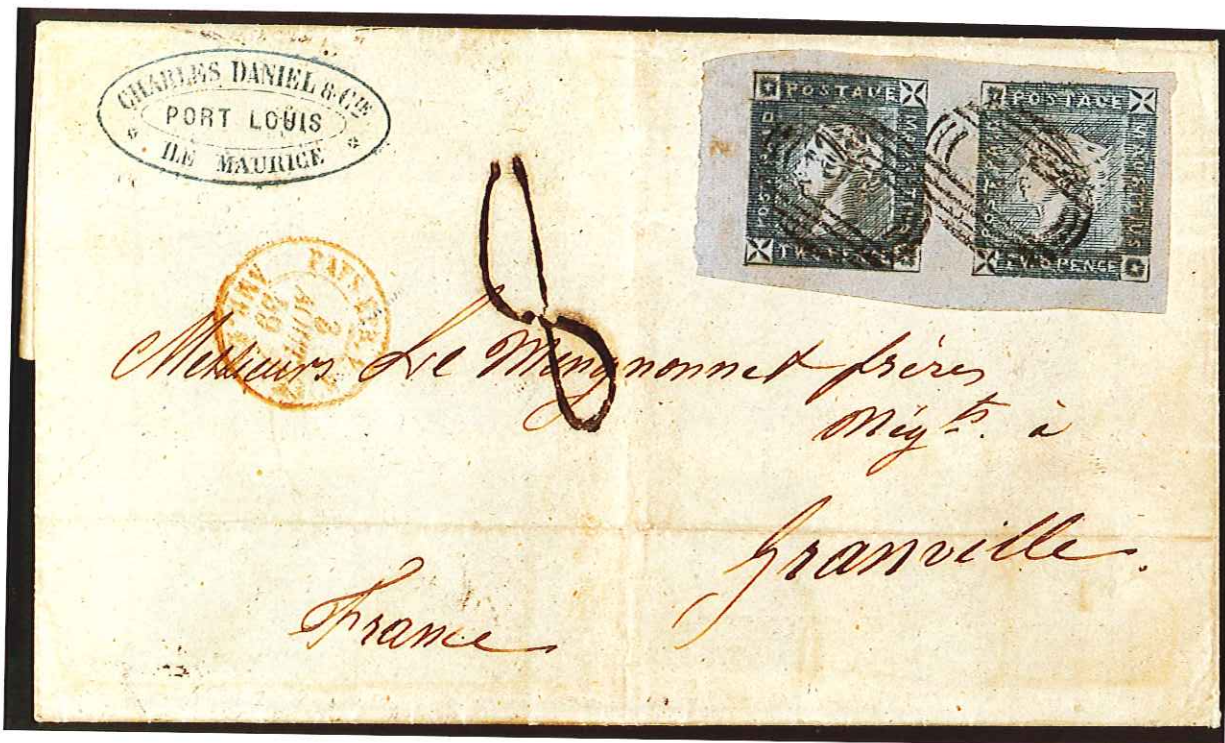 CHARLES DANIEL & CIE
PORT LOUIS
ILE MAURICE
POSTAGE
TWO PENCE
POSTAGE
MAURITIUS
TWO PENCE
8
3
AOUT
59
Messieurs Le Mengnonnet frères
Négts. à
Granville.
France